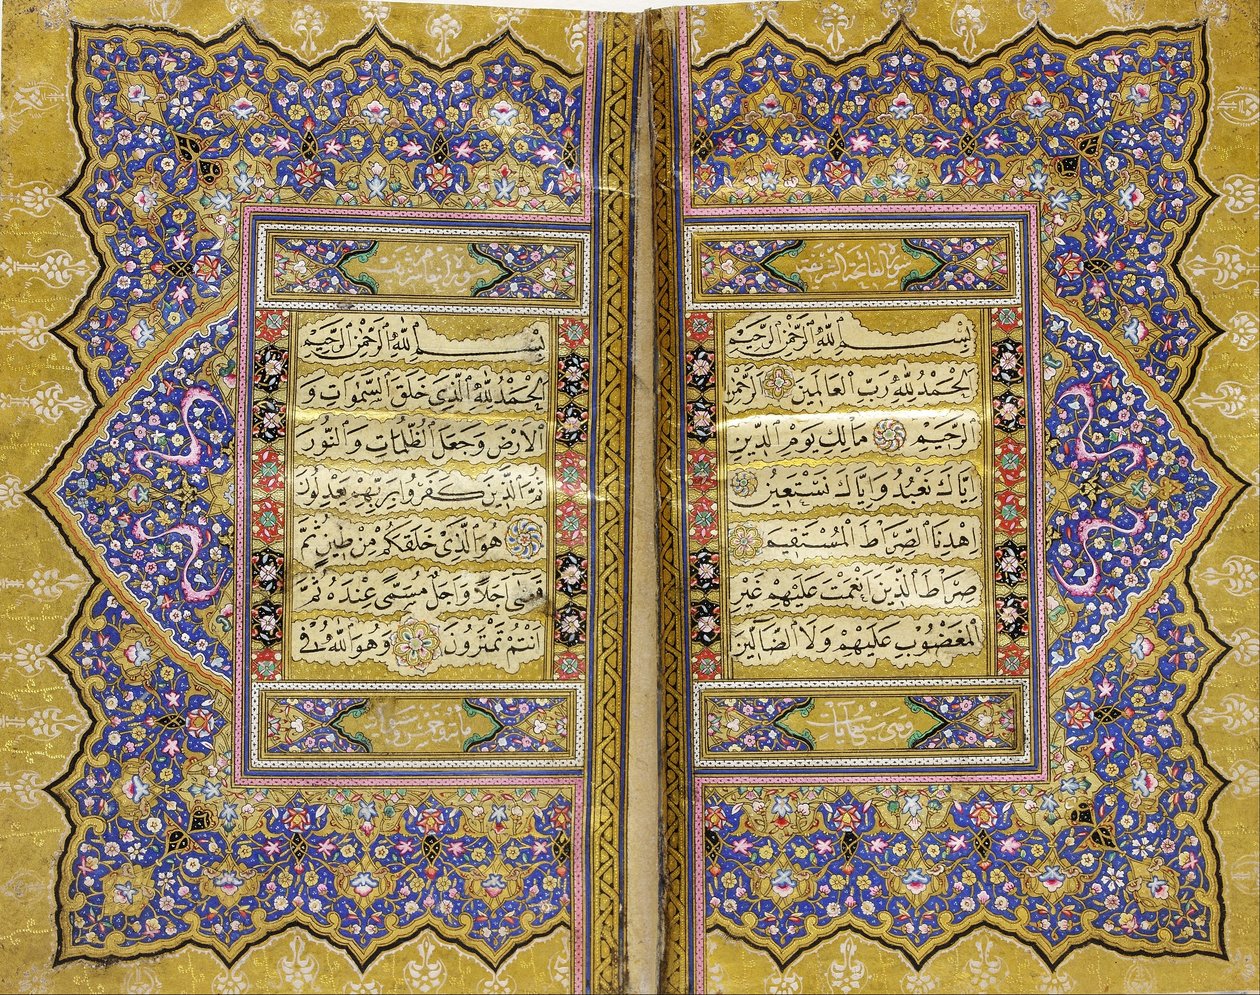 سورة الفاتحة الشريفة
بِسْمِ اللّٰهِ الرَّحْمٰنِ الرَّحِيمِ
اَلْحَمْدُ لِلّٰهِ رَبِّ الْعَالَمِينَ الرَّحْمٰنِ
الرَّحِيمِ مَالِكِ يَوْمِ الدِّينِ
اِيَّاكَ نَعْبُدُ وَاِيَّاكَ نَسْتَعِينُ
اِهْدِنَا الصِّرَاطَ الْمُسْتَقِيمَ
صِرَاطَ الَّذِينَ اَنْعَمْتَ عَلَيْهِمْ غَيْرِ
الْمَغْضُوبِ عَلَيْهِمْ وَلَا الضَّالِّينَ
وهي سبع آيات
سورة الانعام
بِسْمِ اللّٰهِ الرَّحْمٰنِ الرَّحِيمِ
اَلْحَمْدُ لِلّٰهِ الَّذِي خَلَقَ السَّمٰوَاتِ وَ
الْاَرْضَ وَجَعَلَ الظُّلُمَاتِ وَالنُّورَ
ثُمَّ الَّذِينَ كَفَرُوا بِرَبِّهِمْ يَعْدِلُونَ
هُوَ الَّذِي خَلَقَكُمْ مِنْ طِينٍ ثُمَّ
قَضٰى اَجَلًا وَاَجَلٌ مُسَمًّى عِنْدَهُ ثُمَّ
اَنْتُمْ تَمْتَرُونَ وَهُوَ اللّٰهُ فِي